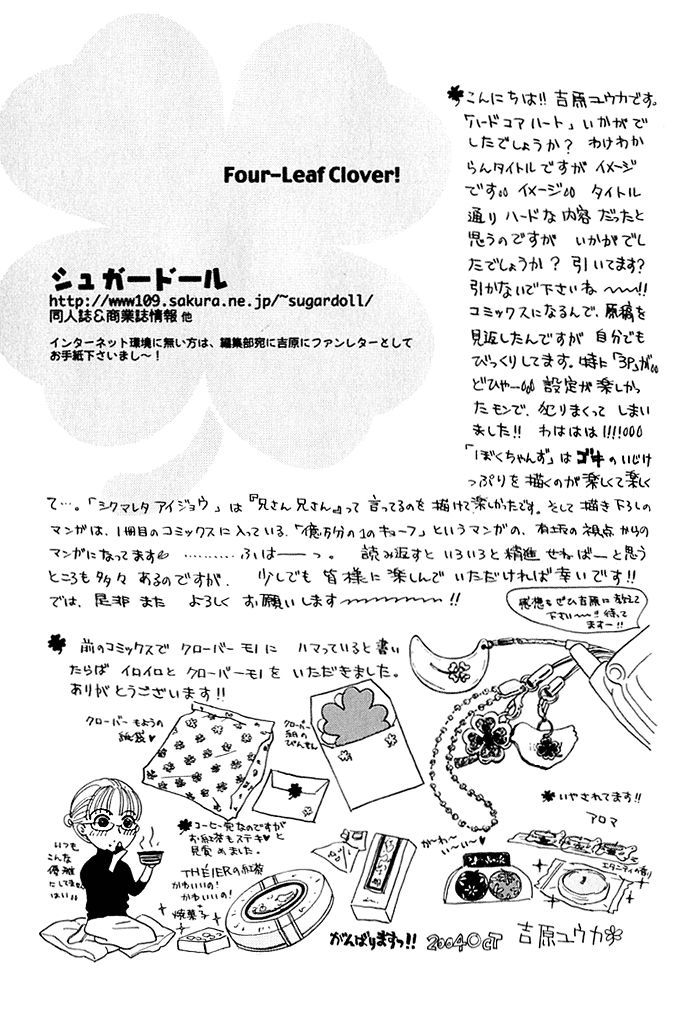 Four-Leaf Clover!
シュガードール
http://www109.sakura.ne.jp/~sugardoll/
同人誌&商業誌情報 他
インターネット環境に無い方は、編集部宛に吉原にファンレターとして
お手紙下さいまし〜!
こんにちは!! 吉原ユウカです。
「ハードコアハート」いかがで
したでしょうか? わけわか
らんタイトルですが イメージ
です。。イメージ。。 タイトル
通り ハードな内容 だったと
思うのですが いかがでし
たでしょうか? 引いてます?
引かないで下さいね 〜〜!!
コミックスになるんで、原稿を
見返したんですが 自分でも
びっくりしてます。時に「3P」が。。
どひゃー。。。 設定が楽しかっ
たモンで、犯りまくって しまい
ました!! わははは!!!!。。。
「ぼくちゃんず」は のいじけ
っぷりを描くのが楽しくて楽し
て…。「シクマレタ アイジョウ」は『兄さん 兄さん』って 言ってるのを 描けて楽しかったです。そして描き下ろしの
マンガは、1冊目のコミックスに入っている、「億万分の1のキューブ」というマンガの、有坂の視点 からの
マンガになってます ………ふぃはーーっ。 読み返すと いろいろと 精進 せねばーと思う
ところも多々 あるのですが、 少しでも 皆様に楽しんで いただければ幸いです!!
では、是非 また よろしく お願いします〜〜〜!!
感想もぜひ吉原に教えて
下さい〜!待って
ますー!!
前のコミックスで クローバー モノに ハマっていると書い
たらば イロイロと クローバーモノを いただきました。
ありがとうございます!!
クローバーもようの
紙袋♥
クローバー
柄の
びんせん
いやされてます!!
アロマ
コーヒー党なのですが
お紅茶もステキ♥と
見覚めました。
THÉIERの紅茶
かわいいの!
かわいいの!
焼菓子
いつも
こんな
優雅
にしてませ
はい。。
がーわー
いーいー♥
エタニティの香り
がんばりますっ!! 2004 Oct 吉原ユウカ